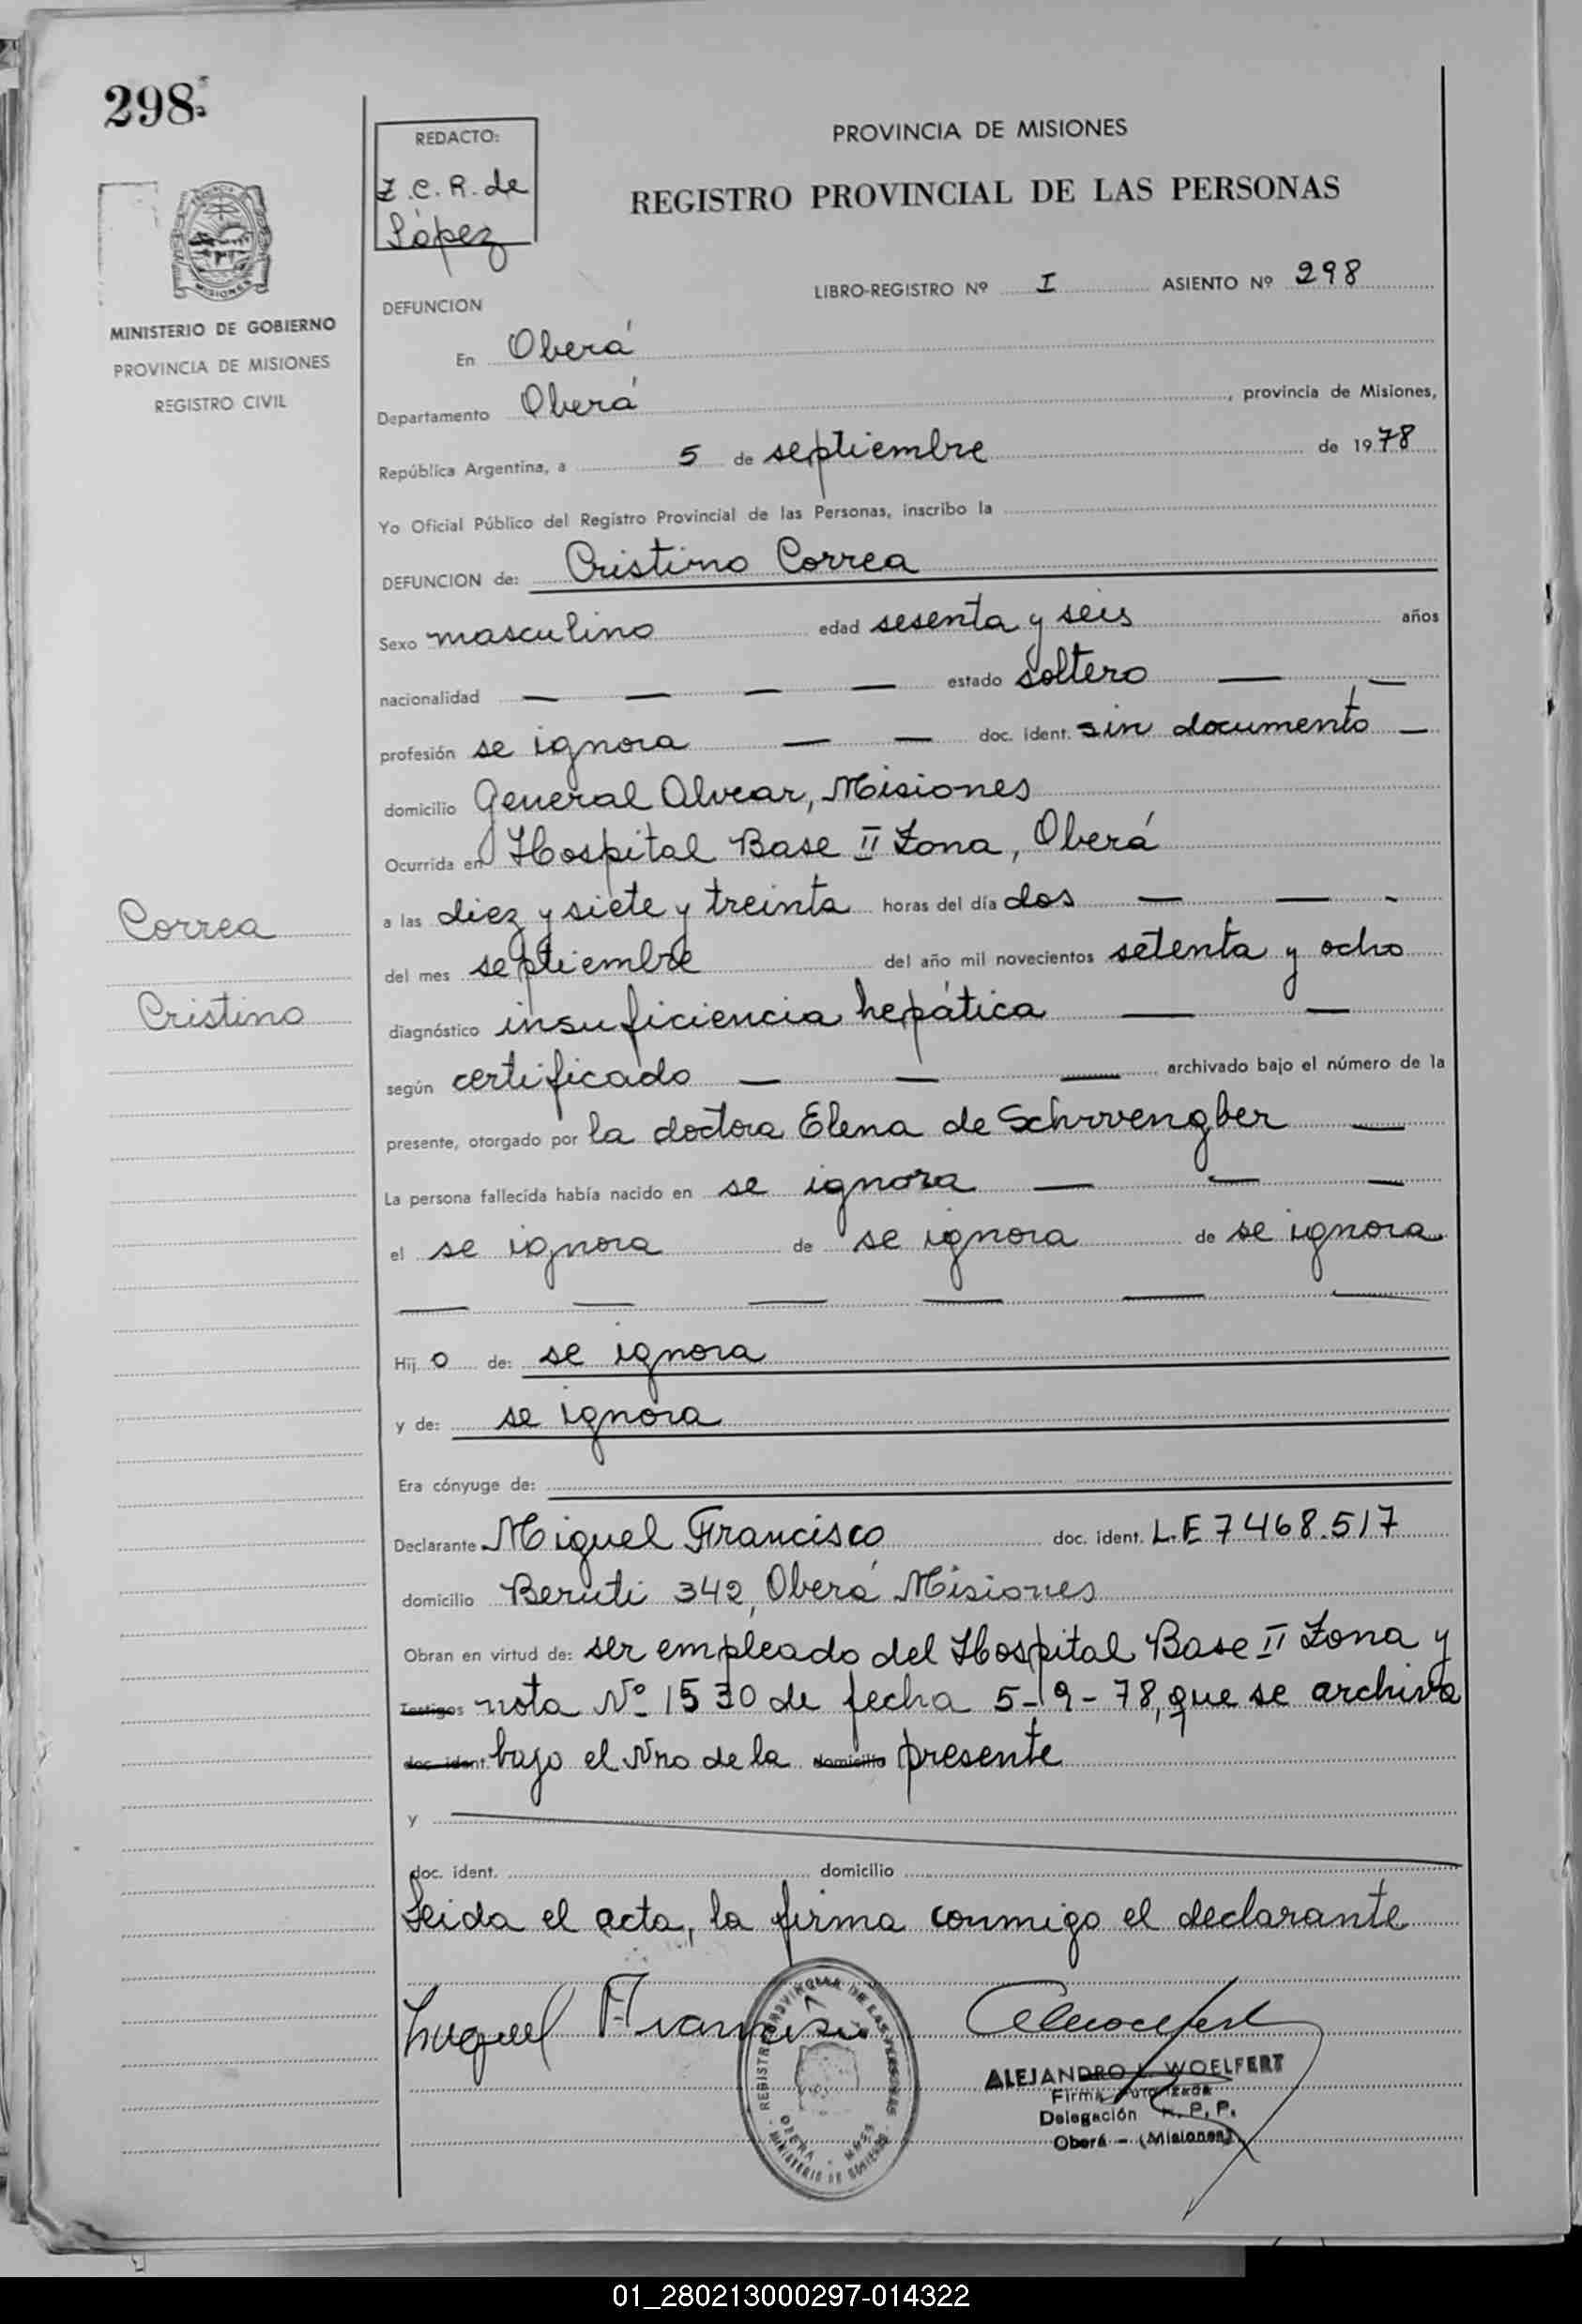 298
REDACTO:
Z.C.R. de
López
PROVINCIA DE MISIONES
REGISTRO PROVINCIAL DE LAS PERSONAS
MISIONES
MINISTERIO DE GOBIERNO
PROVINCIA DE MISIONES
REGISTRO CIVIL
LIBRO-REGISTRO Nº I ASIENTO Nº 298
DEFUNCION
En Oberá
Departamento Oberá, provincia de Misiones,
República Argentina, a 5 de septiembre de 1978
Yo Oficial Público del Registro Provincial de las Personas, inscribo la
DEFUNCION de: Cristino Correa
Sexo masculino edad sesenta y seis años
nacionalidad — — — — estado soltero — —
profesión se ignora — — doc. ident. sin documento —
domicilio General Alvear, Misiones
Ocurrida en Hospital Base II Zona, Oberá
a las diez y siete y treinta horas del día dos — — -
del mes septiembre del año mil novecientos setenta y ocho
diagnóstico insuficiencia hepática — —
según certificado — — — archivado bajo el número de la
presente, otorgado por la doctora Elena de Schwengber —
La persona fallecida había nacido en se ignora — — —
el se ignora de se ignora de se ignora
— — — — — —
Hij o de: se ignora
y de: se ignora
Era cónyuge de:
Declarante Miguel Francisco doc. ident. L.E 7468.517
domicilio Beruti 342, Oberá Misiones
Obran en virtud de: ser empleado del Hospital Base II Zona y
Testigos nota Nº 1530 de fecha 5-9-78, que se archiva
doc. ident. bajo el Nro de la domicilio presente
y
doc. ident. domicilio
Leida el acta, la firma conmigo el declarante
Correa
Cristino
Miguel Francisco
REGISTRO PROVINCIAL DE LAS PERSONAS
OBERA - MNES
MINISTERIO DE GOBIERNO
ALEJANDRO WOELFERT
Firma Autorizada
Delegación R. P. P.
Oberá - (Misiones)
01_280213000297-014322